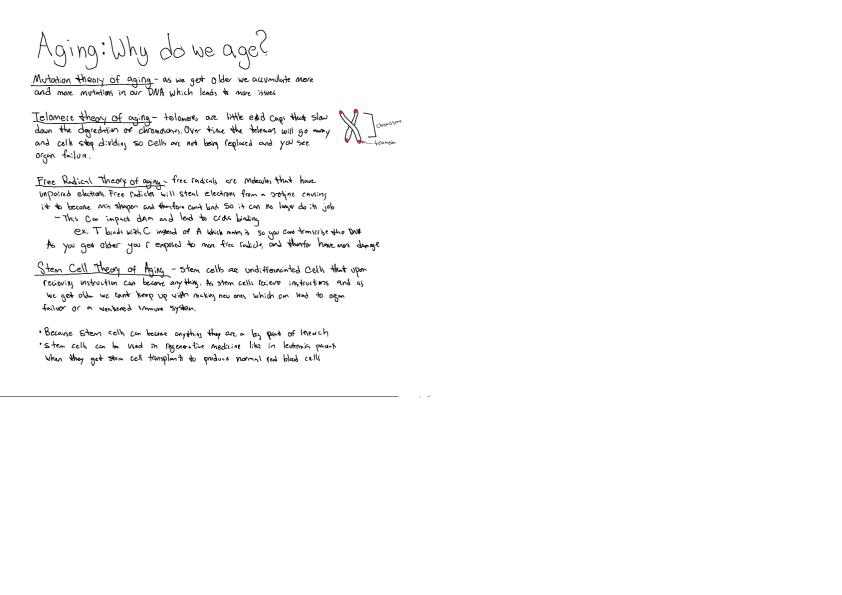 Aging: Why do we age?
Mutation theory of aging - as we get older we accumulate more
and more mutations in our DNA which leads to more issues
Telomere theory of aging - telomeres are little end caps that slow
down the degredation of chromosomes. Over time the telomeres will go away
and cells stop dividing so cells are not being replaced and you see
organ failure.
chromosome
telomere
Free Radical Theory of aging - free radicals are molecules that have
unpaired electrons. Free radicles will steal electrons from a protine causing
it to become mis shapen and therefore cant bind so it can no longer do its job
- This can impact DNA and lead to binding
ex. T binds with C instead of A which so you cant transcribe the DNA
As you get older you r exposed to more free radicle, and therefor have more damage
Stem Cell Theory of Aging - stem cells are undifferentiated cells that upon
recieving instruction can become anything. As stem cells recieve instructions and as
we get older we cant keep up with making new ones which can lead to organ
failure or a weakened immune system.
• Because stem cells can become anything they are a big part of research
• stem cells can be used in regenerative medicine like in leukemia patients
when they get stem cell transplants to produce normal red blood cells